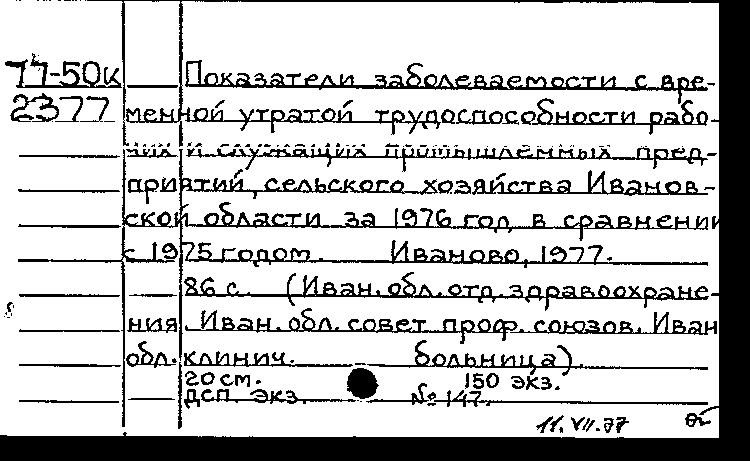 77-50к Показатели заболеваемости с вре-
2377 менной утратой трудоспособности рабо-
чих и служащих промышленных пред-
приятий, сельского хозяйства Иванов-
ской области за 1976 год в сравнении
с 1975 годом. Иваново, 1977.
86 с. (Иван. обл. отд. здравоохране-
ния. Иван. обл. совет проф. союзов. Иван
обл. клинич. больница)
20 см. 150 экз.
дсп. экз. № 147.
11.VII.77